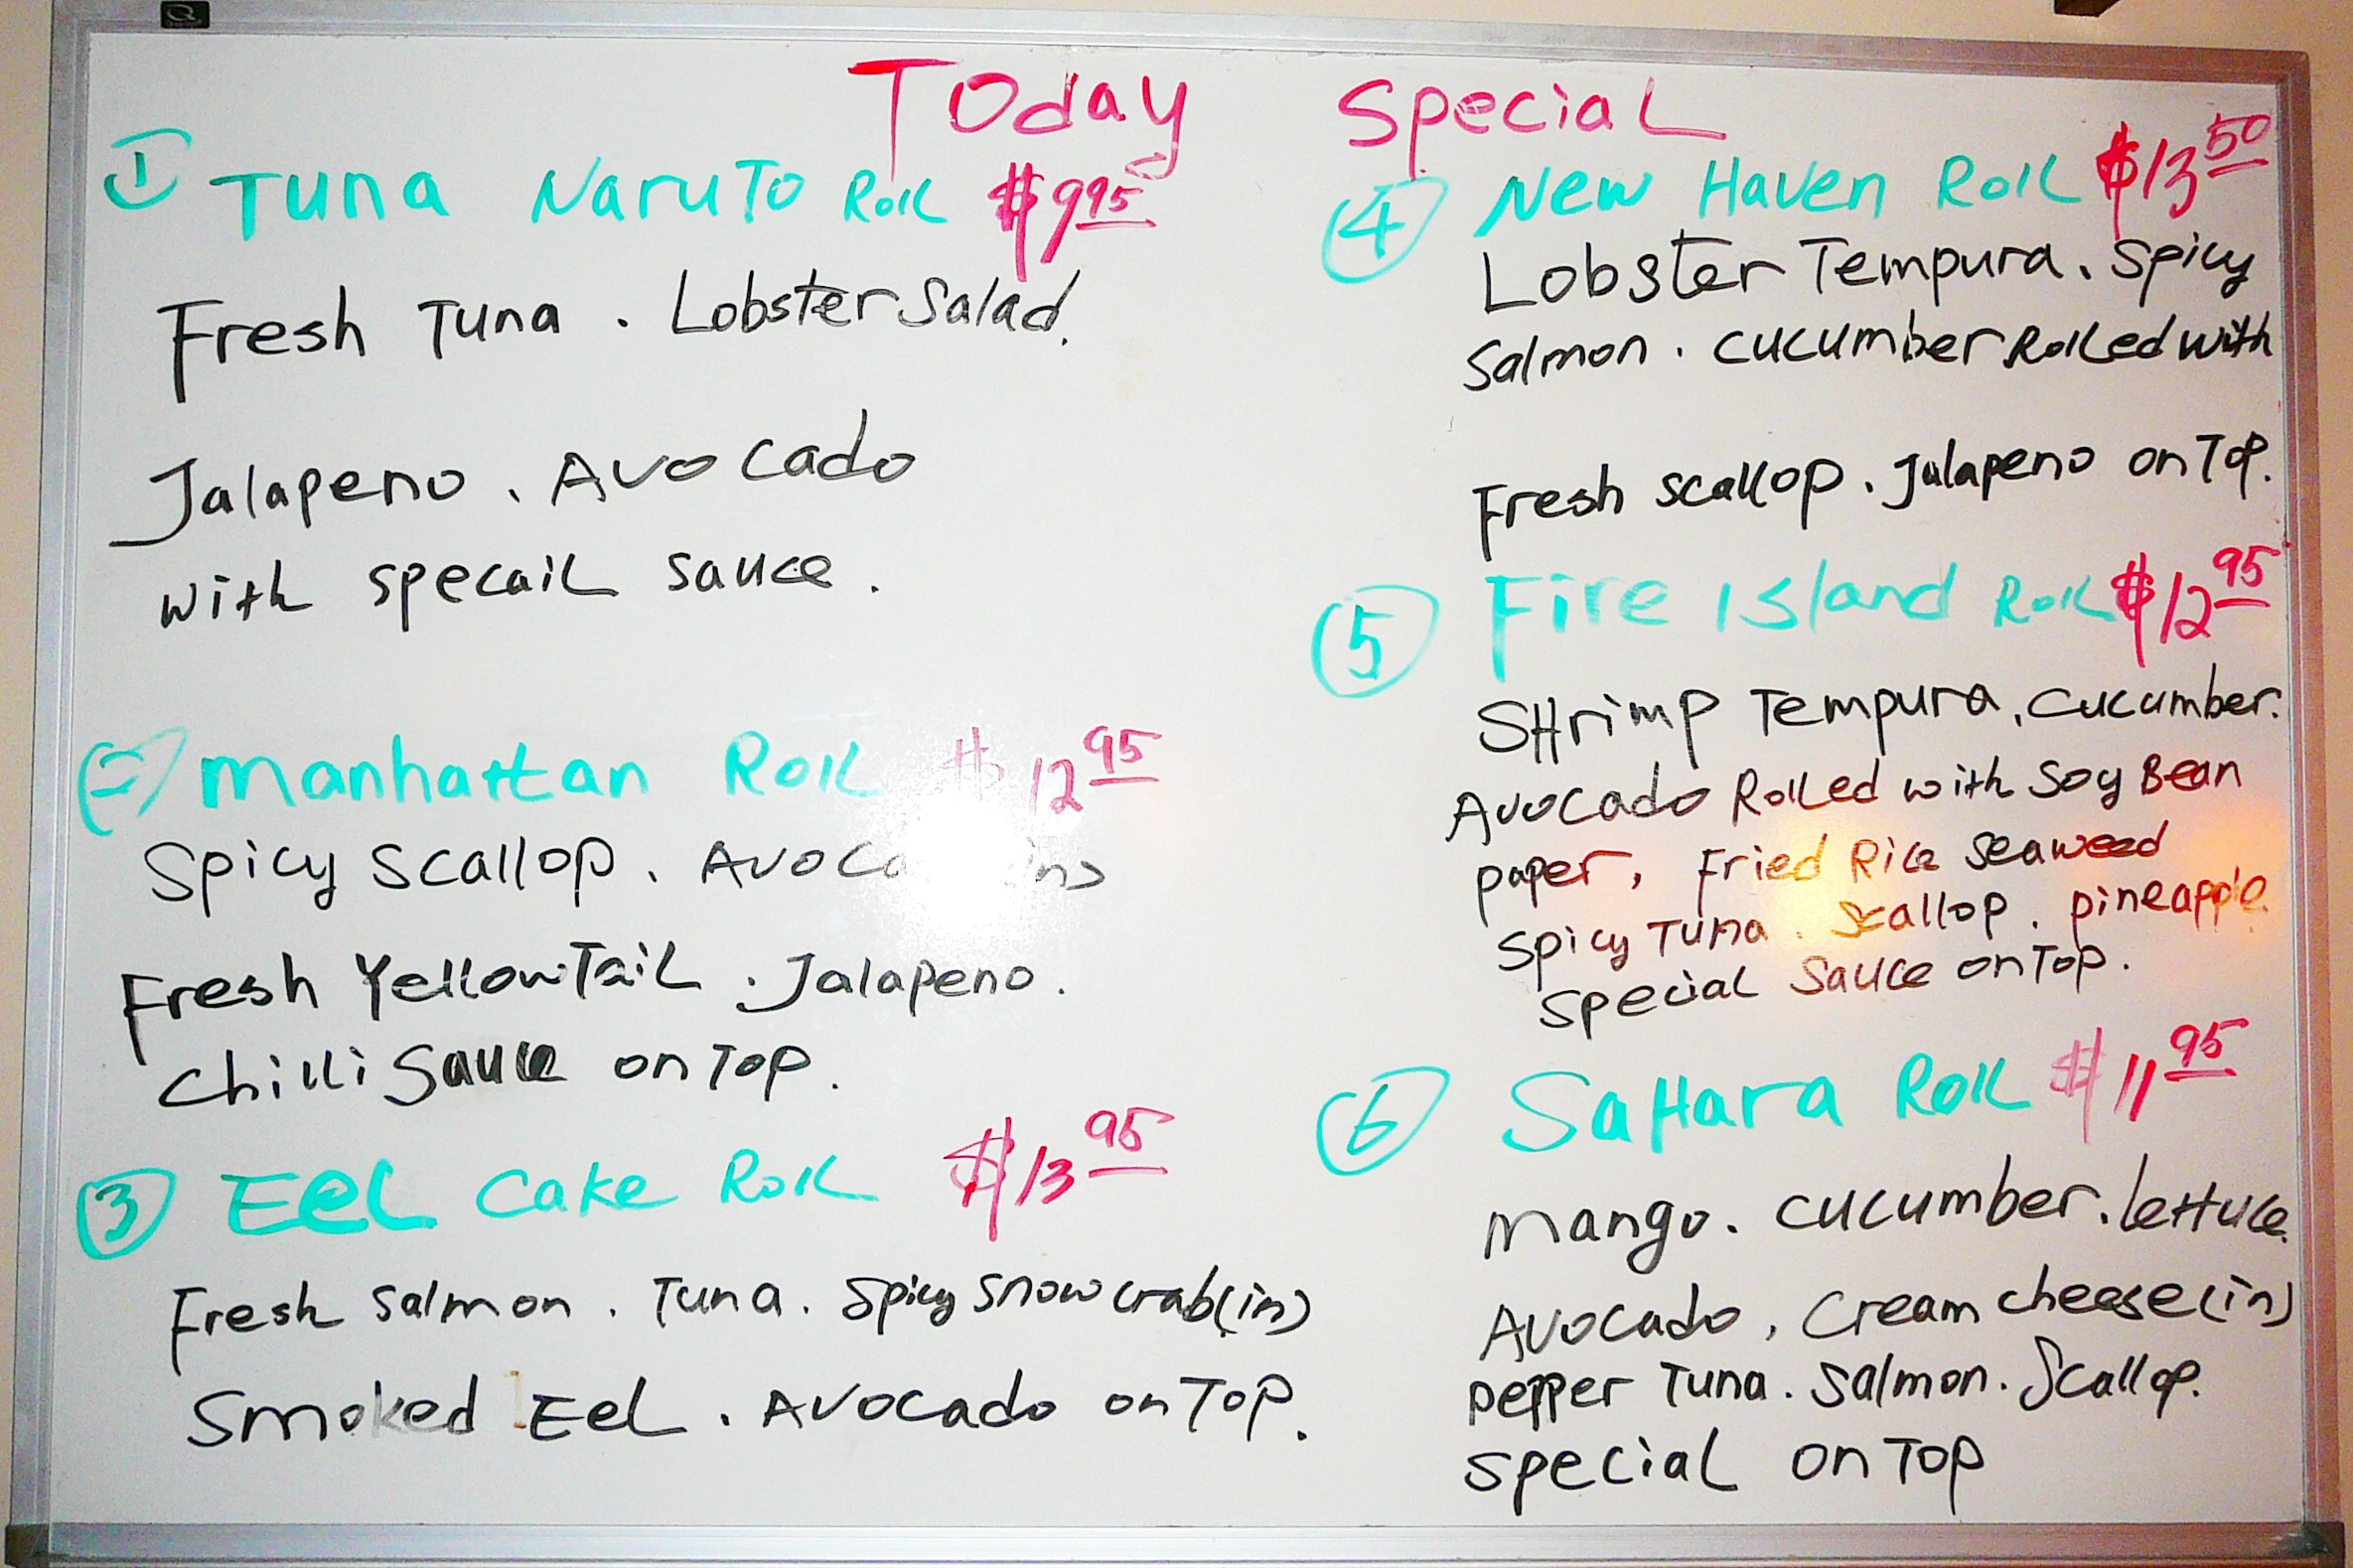 Today Special
① Tuna Naruto Roll $9.95
Fresh Tuna. Lobster Salad.
Jalapeno, Avocado
with specail sauce.
② manhattan Roll $12.95
Spicy scallop, Avoca in)
Fresh YellowTail. Jalapeno.
chilli sauce on Top.
③ Eel Cake Roll $13.95
Fresh salmon. Tuna. Spicy snow crab(in)
Smoked Eel. Avocado on Top.
④ New Haven Roll $13.50
Lobster Tempura, Spicy
Salmon. cucumber Rolled with
Fresh scallop. Jalapeno on Top.
⑤ Fire Island Roll $12.95
SHrimp Tempura, cucumber.
Avocado Rolled with Soy Bean
paper, Fried Rice seaweed
spicy Tuna. Scallop. pineapple.
special Sauce on Top.
⑥ SaHara Roll $11.95
mango. cucumber. lettuce.
Avocado, Cream cheese(in)
pepper Tuna. Salmon. Scallop.
special on Top